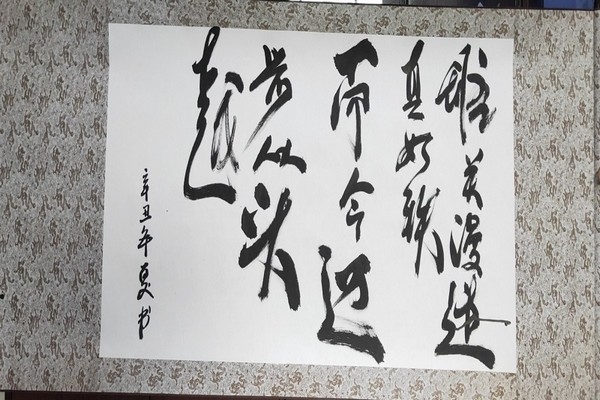 雄关漫道
真如铁
而今迈
步从头
越
辛丑年夏书